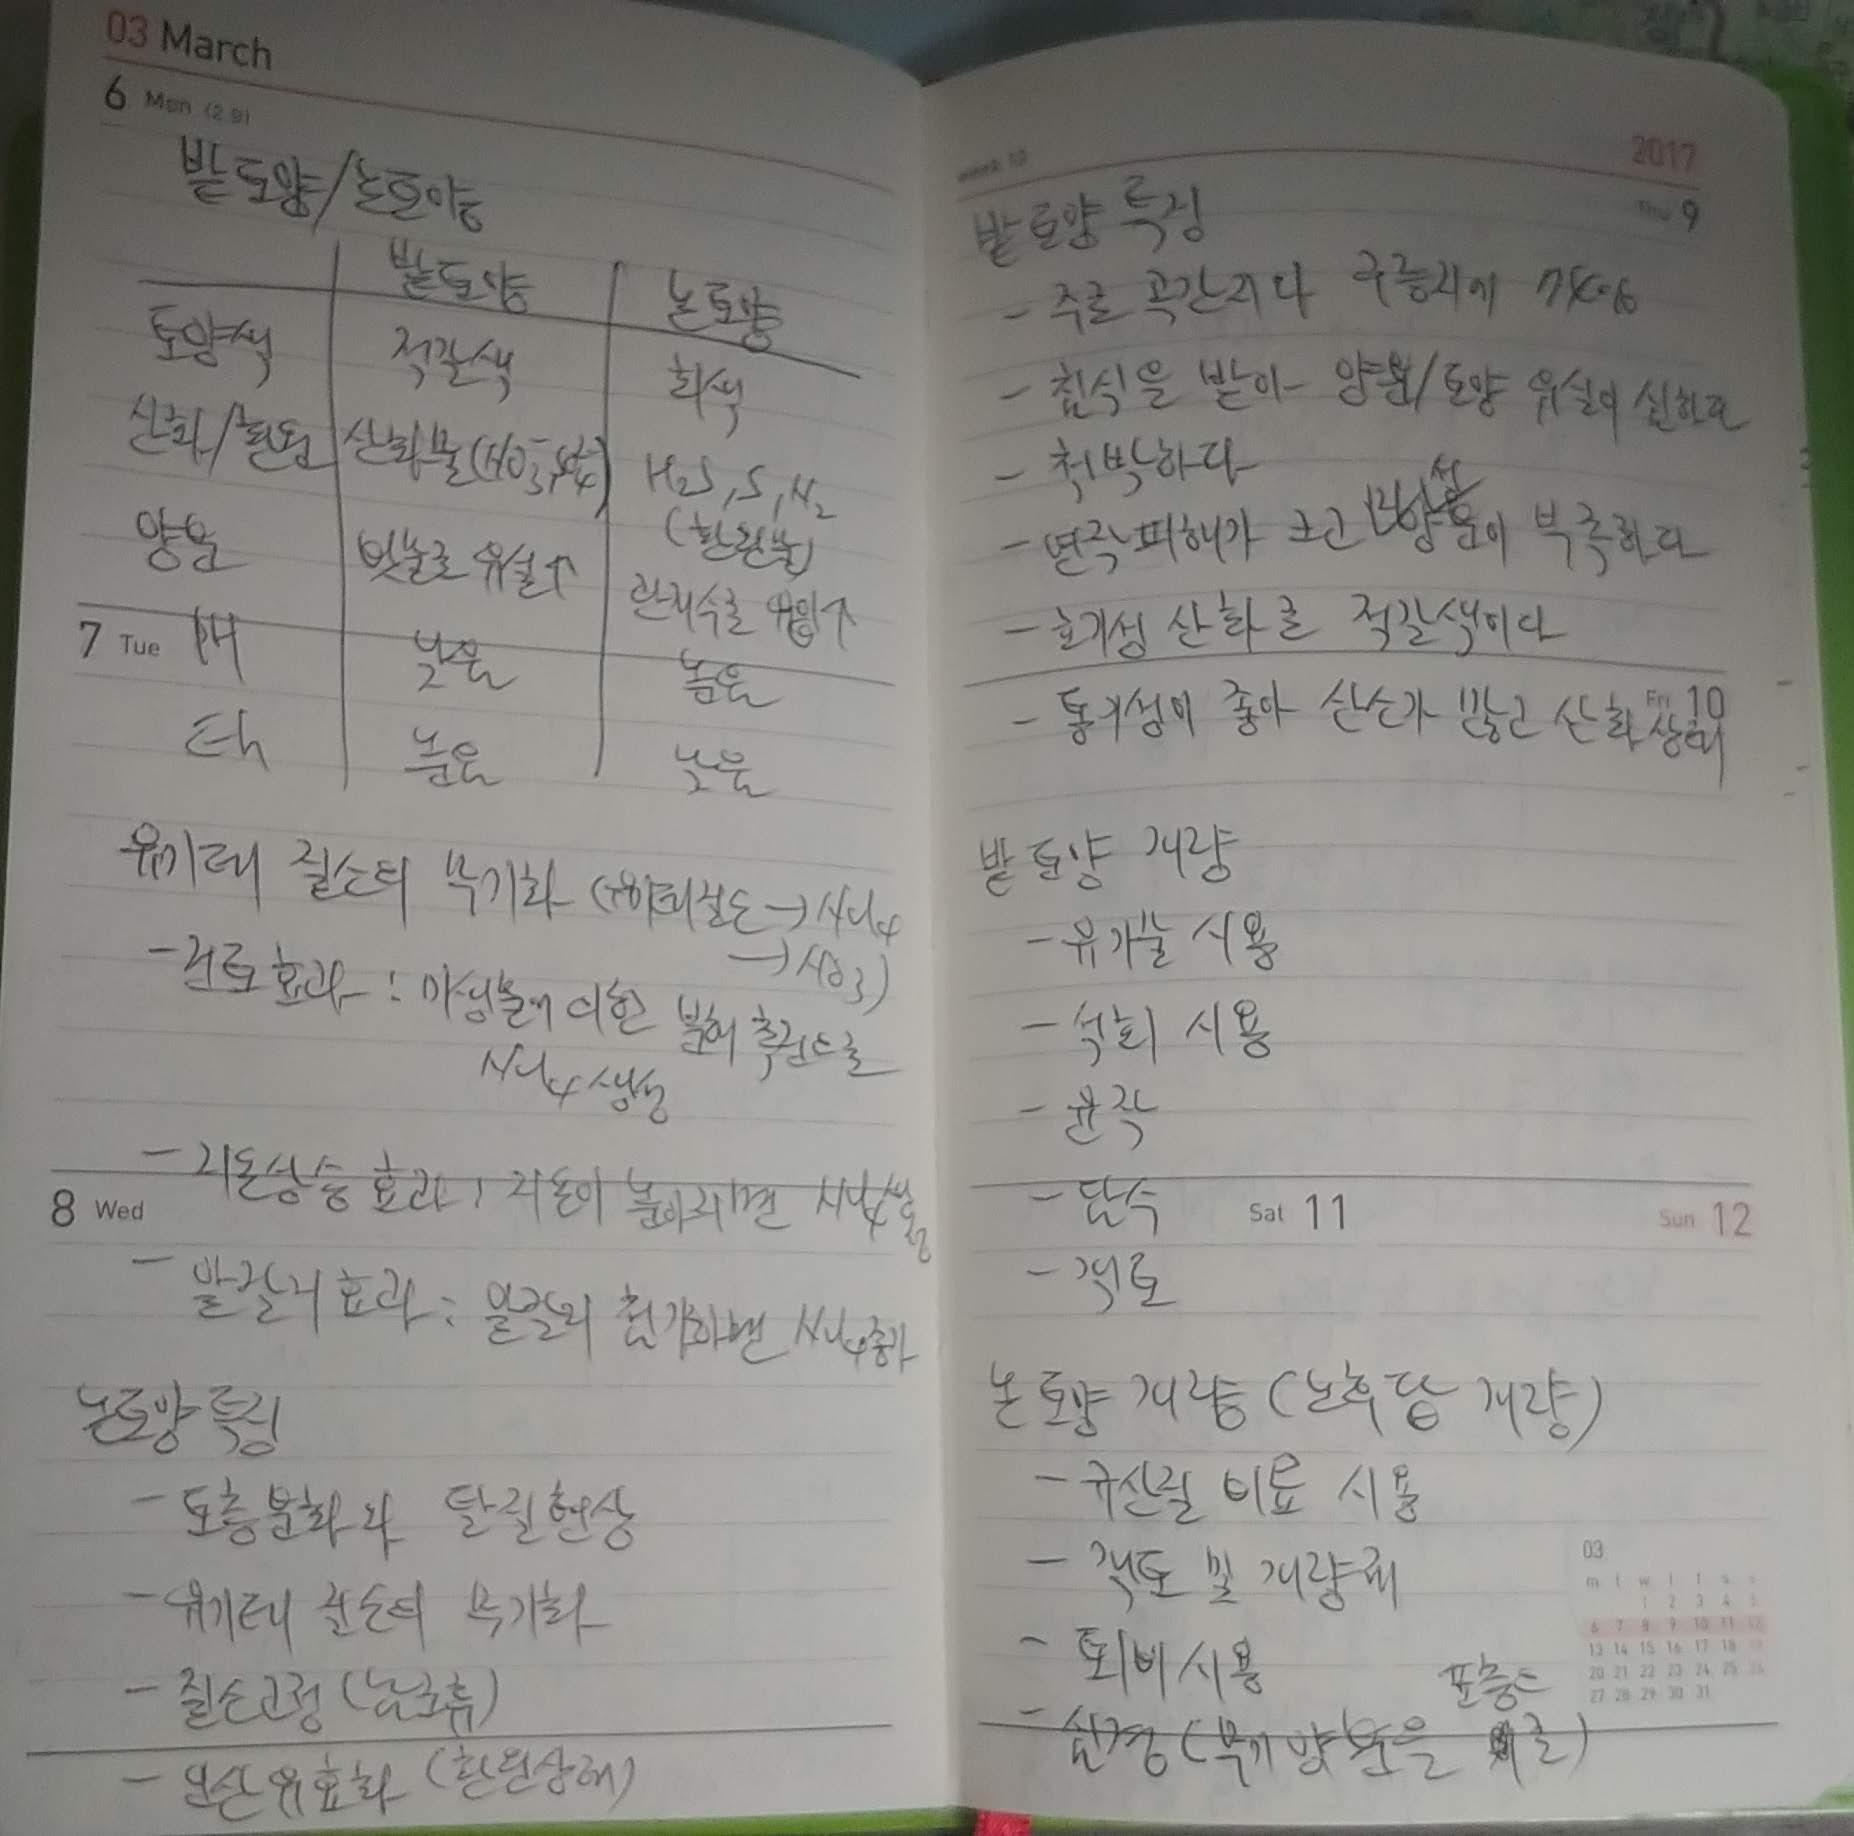 03 March
6 Mon (2.9)
밭토양/논토양
밭토양 논토양
토양색 적갈색 회색
산화/환원 산화물(NO3-, SO4) H2S, S, N2
(환원물)
양분 빗물로 유실↑ 관개수로 유입↑
7 Tue pH 낮음 높음
Eh 높음 낮음
유기태 질소의 무기화 (유기태질소→NH4
→NO3)
- 건토효과 : 미생물에 의한 분해 촉진으로
NH4생성
- 지온상승효과 : 지온이 높아지면 NH4
8 Wed
- 알칼리효과 : 알칼리 첨가하면 NH4증가
논토양 특징
- 토층분화와 탈질현상
- 유기태 질소의 무기화
- 질소고정 (남조류)
- 인산유효화 (환원상태)
week 10 2017
Thu 9
밭토양 특징
- 주로 곡간지나 구릉지에
- 침식을 받아 양분/토양 유실이 심하다
- 척박하다
- 연작피해가 크고 미량 양분이 부족하다
- 호기성 산화로 적갈색이다
Fri 10
- 통기성이 좋아 산소가 많고 산화상태
밭토양 개량
- 유기물 시용
- 석회 시용
- 윤작
- 담수
Sat 11 Sun 12
- 객토
논토양 개량 (노후답 개량)
- 규산질 비료 시용
- 객토 및 개량제
- 퇴비시용
표층으
- 심경 (무기양분을 로)
03
m t w t f s s
1 2 3 4 5
6 7 8 9 10 11 12
13 14 15 16 17 18 19
20 21 22 23 24 25 26
27 28 29 30 31